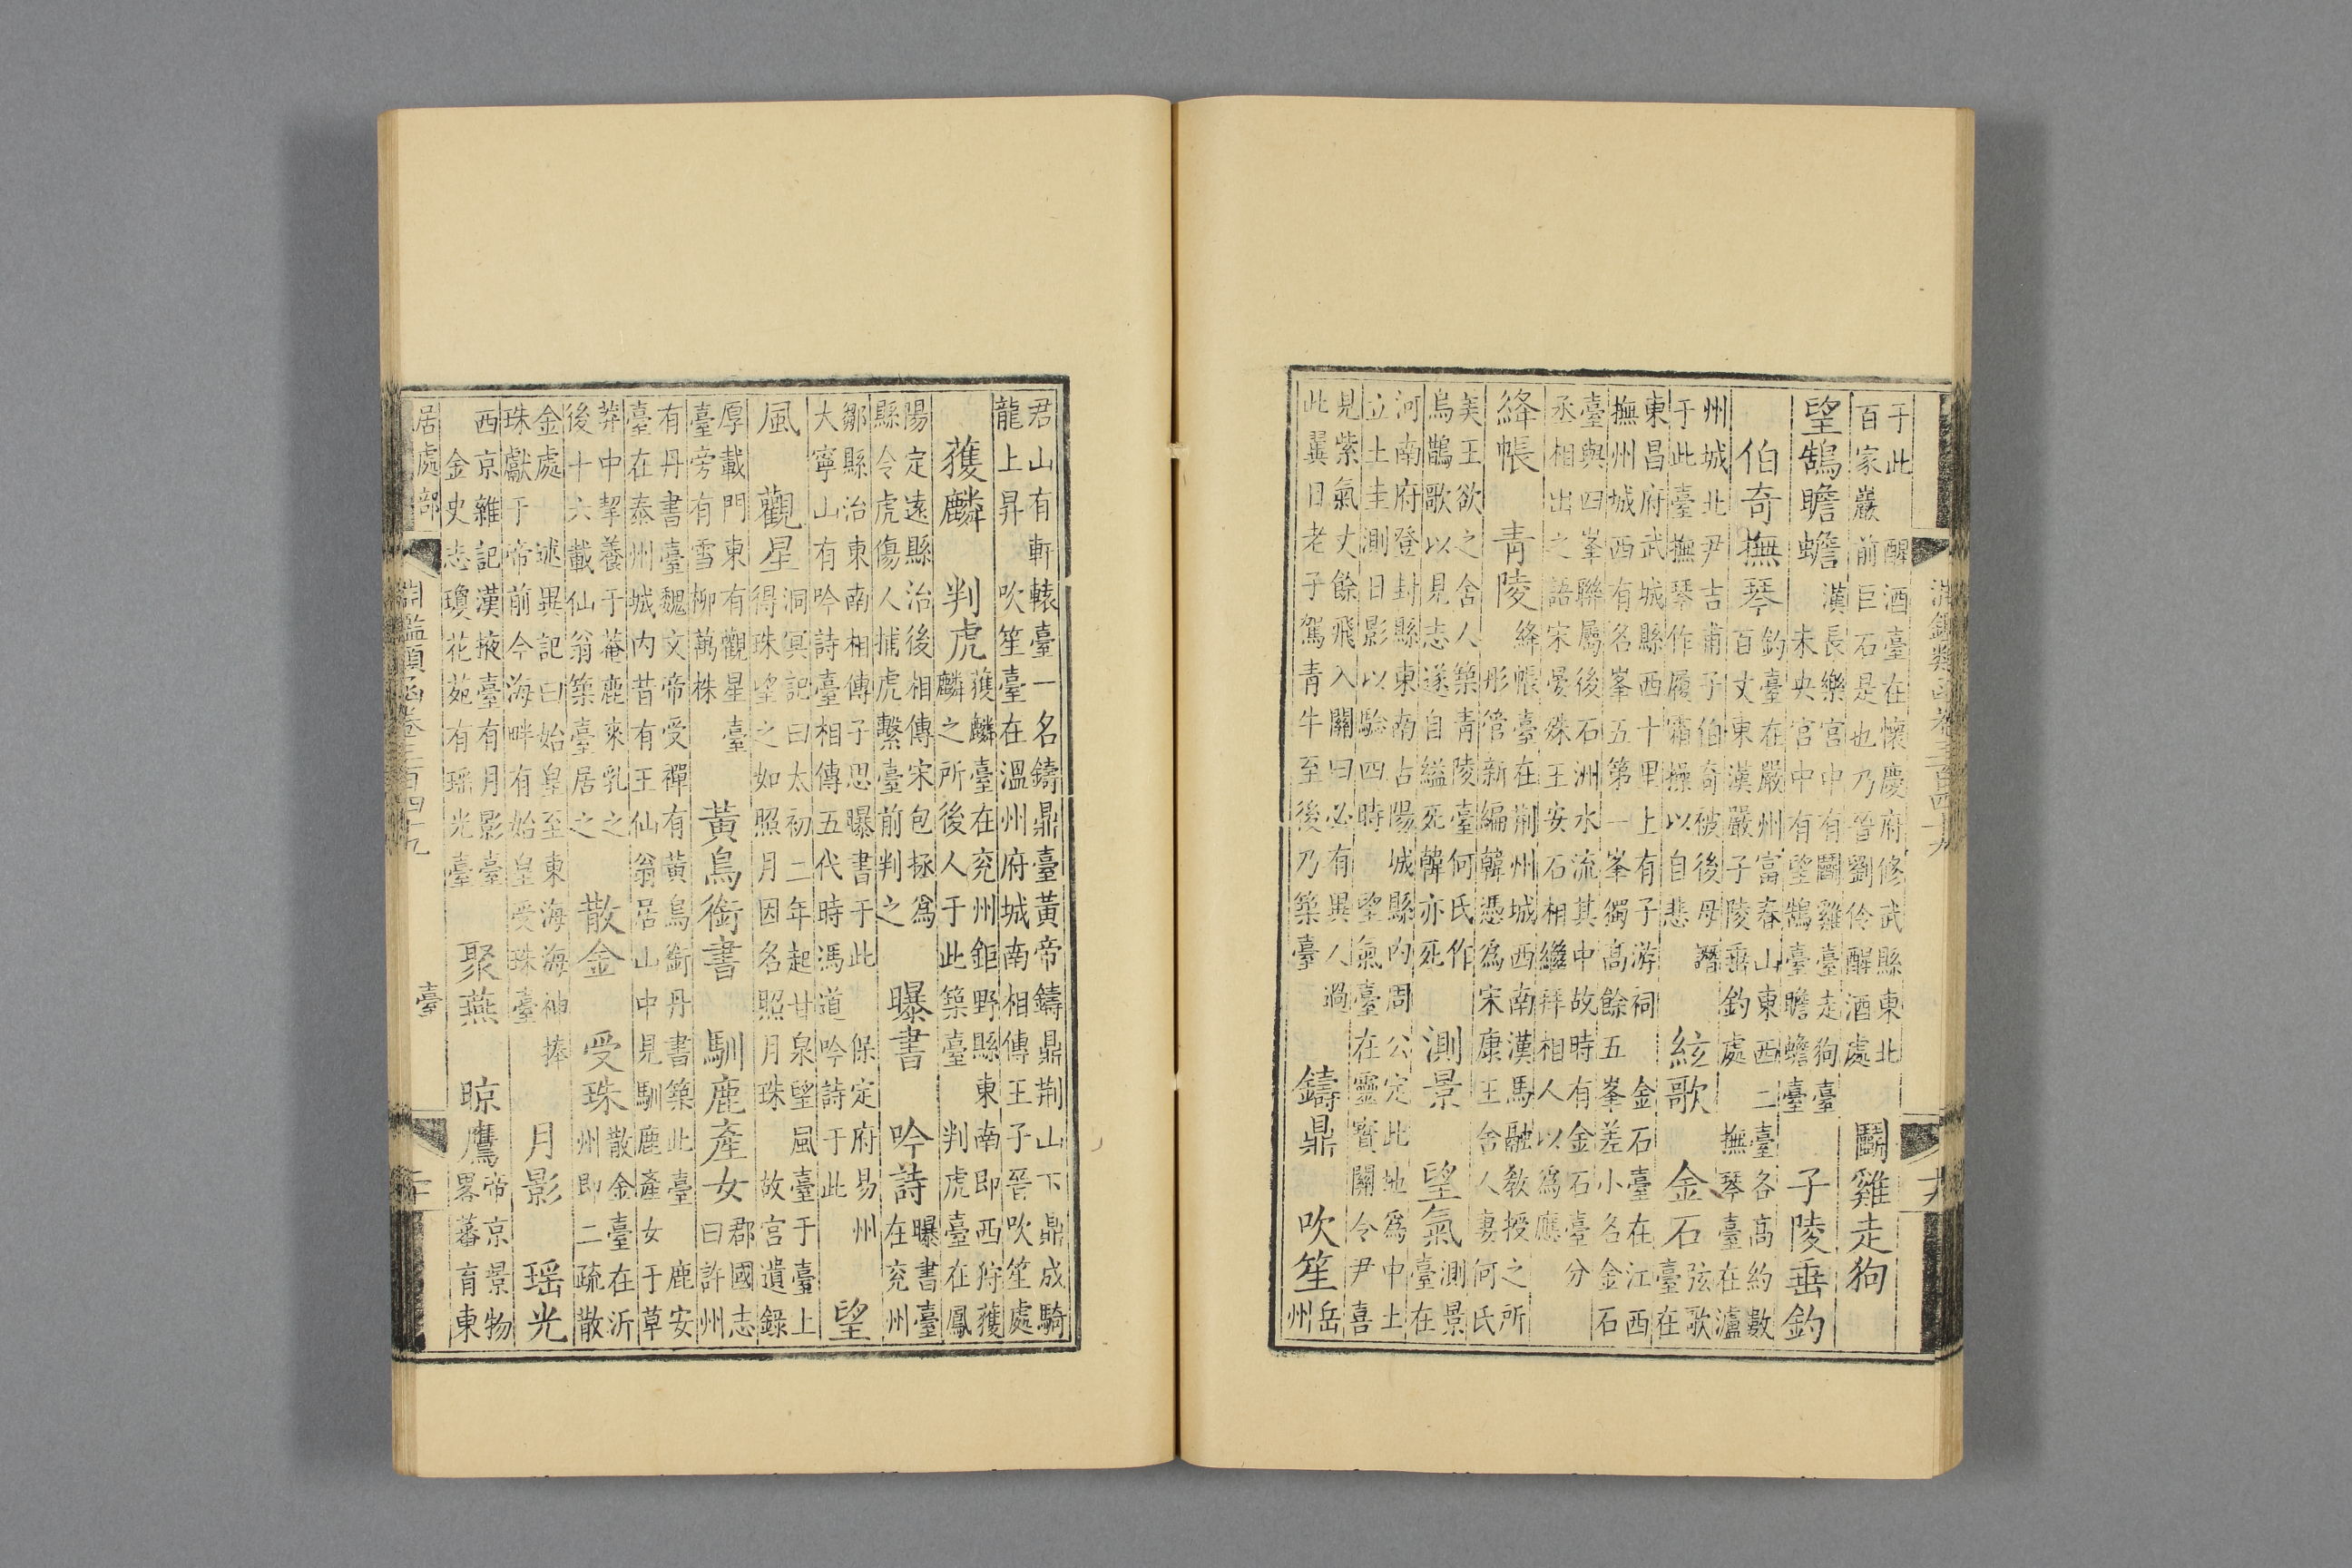 于此　醒酒臺在懷慶府修武縣東北
百家巖前巨石是也乃晉劉伶醒酒處
鬭雞走狗
望鵠瞻蟾
漢長樂宮中有鬭雞臺走狗臺
未央宮中有望鵠臺瞻蟾臺
子陵垂釣
伯奇撫琴
釣臺在嚴州富春山東西二臺各高約數
百丈東漢嚴子陵垂釣處　撫琴臺在瀘
州城北尹吉甫子伯奇被後母譖
于此臺撫琴作履霜操以自悲
絃歌　金石
弦歌
臺在
東昌府武城縣西十里上有子游祠　金石臺在江西
撫州城西有名峯五第一峯獨高餘五峯差小名金石
臺與四峯聯屬後石洲水流其中故時有金石臺分
丞相出之語宋晏殊王安石相繼拜相人以為應
絳帳　青陵
絳帳臺在荆州城西南漢馬融教授之所
彤管新編韓憑為宋康王舍人妻何氏
美王欲之舍人築青陵臺何氏作
烏鵲歌以見志遂自縊死韓亦死
測景　望氣
測景
臺在
河南府登封縣東南古陽城縣內周公定此地為中土
立土圭測日影以驗四時　望氣臺在靈寶關令尹喜
見紫氣丈餘飛入關曰必有異人過
此冀日老子駕青牛至後乃築臺
鑄鼎　吹笙
岳
州
君山有軒轅臺一名鑄鼎臺黃帝鑄鼎荆山下鼎成騎
龍上昇　吹笙臺在溫州府城南相傳王子晉吹笙處
獲麟　判虎
獲麟臺在兖州鉅野縣東南即西狩獲
麟之所後人于此築臺　判虎臺在鳳
陽定遠縣治後相傳宋包拯爲
縣令虎傷人捕虎繫臺前判之
曝書　吟詩
曝書臺
在兖州
鄒縣治東南相傳子思曝書于此　保定府易州
大寧山有吟詩臺相傳五代時馮道吟詩于此
望
風　觀星
洞冥記曰太初二年起甘泉望風臺于臺上
得珠望之如照月因名照月珠　故宮遺錄
厚載門東有觀星臺
臺旁有雪柳萬株
黃鳥銜書　馴鹿產女
郡國志
曰許州
有丹書臺魏文帝受禪有黃鳥銜丹書築此臺　鹿安
臺在泰州城內昔有王仙翁居山中見馴鹿產女于草
莽中挈養于菴鹿來乳之
後十六載仙翁築臺居之
散金　受珠
散金臺在沂
州即二疏散
金處　述異記曰始皇至東海海神捧
珠獻于帝前今海畔有始皇受珠臺
月影　瑶光
西京雜記漢掖臺有月影臺
金史志瓊花苑有瑶光臺
聚燕　晾鷹
帝京景物
畧蕃育東
居處部　淵鑑類函卷三百四十九　臺